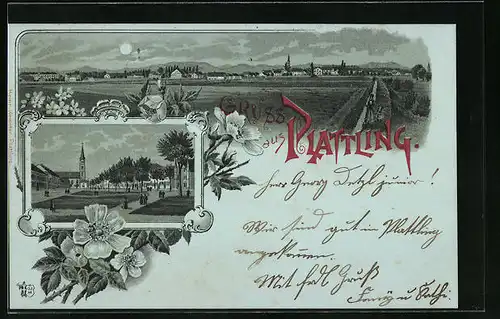 GRUSS
aus PLATTLING.
Herr Georg Detzl junior!
Wir sind gut in Plattling
angekommen.
Mit frdl Gruß
Fanny u Kathi.